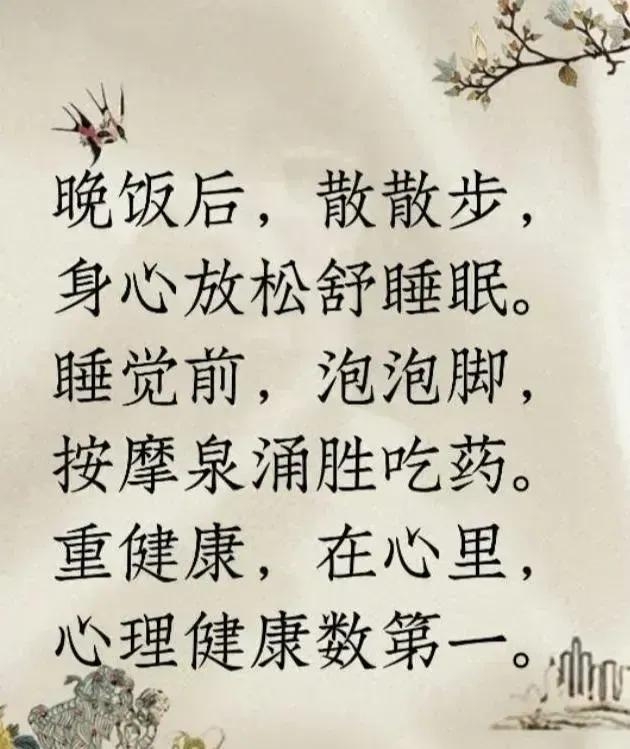 晚饭后，散散步，
身心放松舒睡眠。
睡觉前，泡泡脚，
按摩泉涌胜吃药。
重健康，在心里，
心理健康数第一。